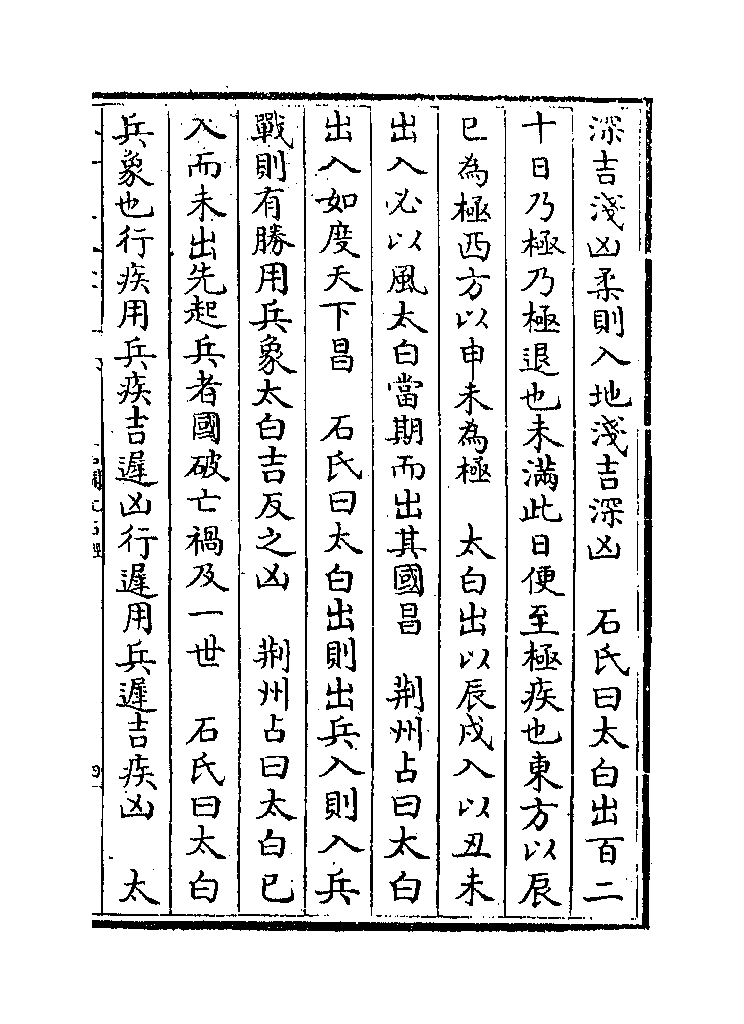 深吉淺凶柔則入地淺吉深凶　石氏曰太白出百二
十日乃極乃極退也未滿此日便至極疾也東方以辰
巳為極西方以申未為極　太白出以辰戌入以丑未
出入必以風太白當期而出其國昌　荆州占曰太白
出入如度天下昌　石氏曰太白出則出兵入則入兵
戰則有勝用兵象太白吉反之凶　荆州占曰太白已
入而未出先起兵者國破亡禍及一世　石氏曰太白
兵象也行疾用兵疾吉遲凶行遲用兵遲吉疾凶　太